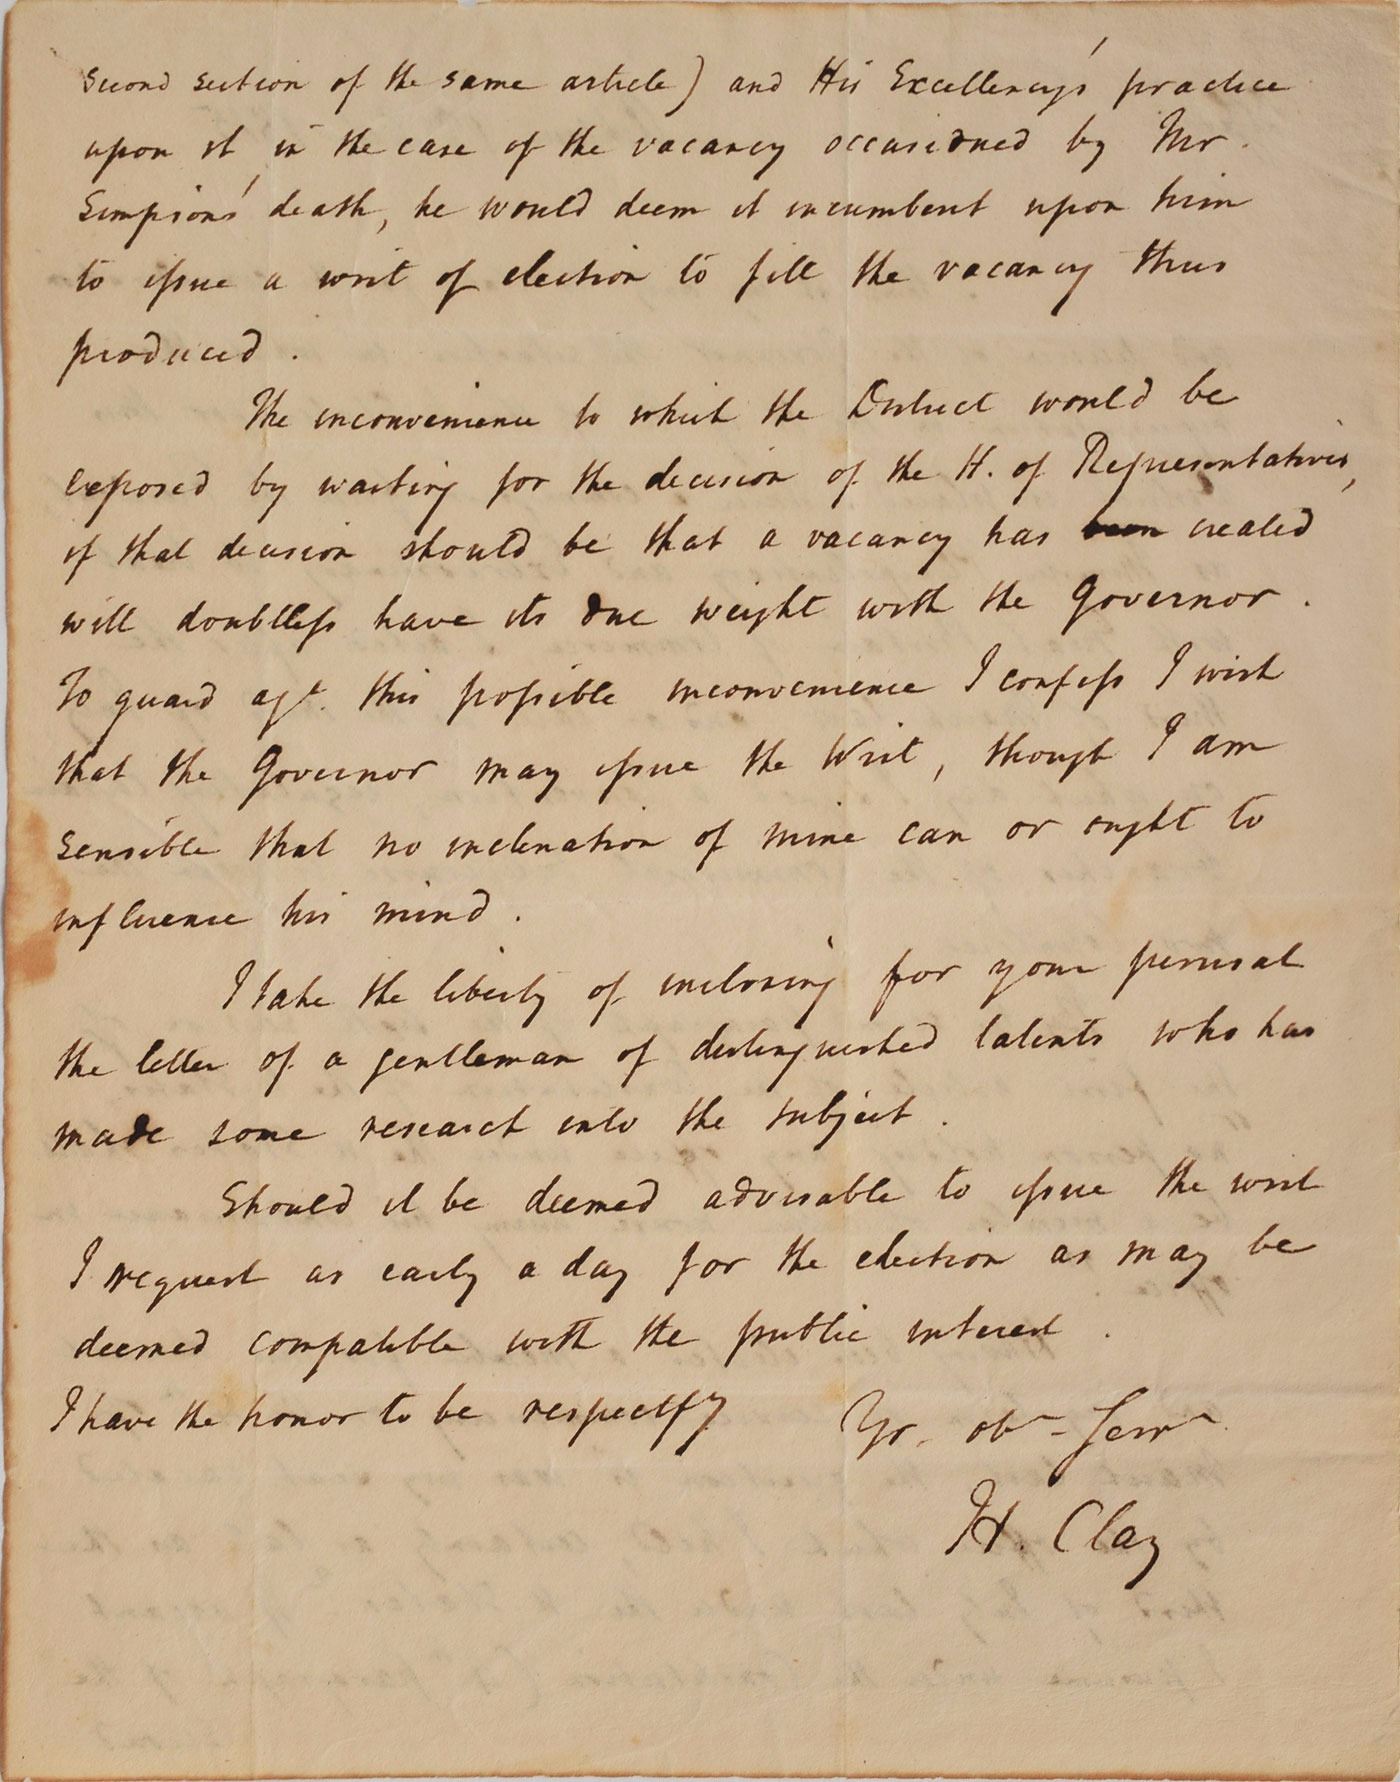 second section of the same article) and His Excellency's practice
upon it, in the case of the vacancy occasioned by Mr.
Simpson's death, he would deem it incumbent upon him
to issue a writ of election to fill the vacancy thus
produced.
The inconvenience to which the District would be
exposed by waiting for the decision of the H. of Representatives,
if that decision should be that a vacancy has been created
will doubtless have its due weight with the Governor.
To guard agt. this possible inconvenience I confess I wish
that the Governor may issue the Writ, though I am
sensible that no inclination of mine can or ought to
influence his mind.
I take the liberty of inclosing for your perusal
the letter of a gentleman of distinguished talents who has
made some research into the subject.
Should it be deemed advisable to issue the writ
I request as early a day for the election as may be
deemed compatible with the public interest.
I have the honor to be respectfy Yr. obt. Servt.
H. Clay